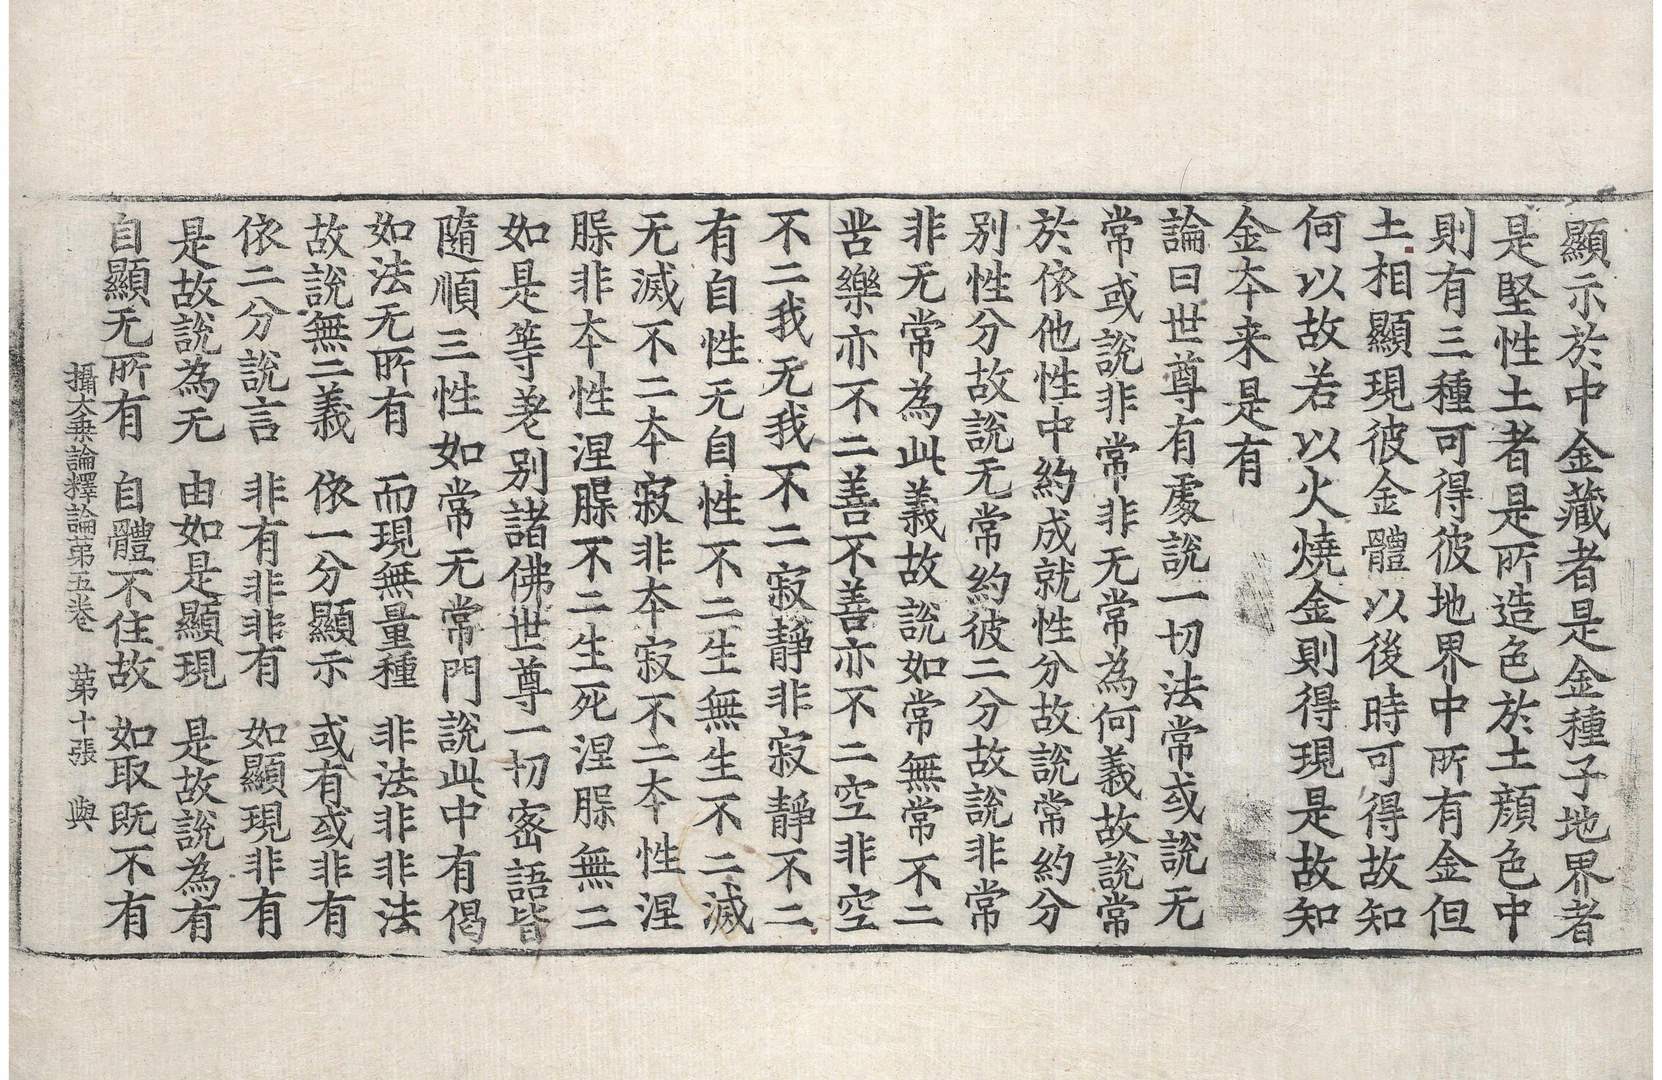 顯示於中金藏者是金種子地界者
是堅性土者是所造色於土顔色中
則有三種可得彼地界中所有金但
土相顯現彼金體以後時可得故知
何以故若以火燒金則得現是故知
金本来是有
論曰世尊有處說一切法常或說无
常或說非常非无常為何義故說常
於依他性中約成就性分故說常約分
别性分故說无常約彼二分故說非常
非无常為此義故說如常無常不二
苦樂亦不二善不善亦不二空非空
不二我无我不二寂靜非寂靜不二
有自性无自性不二生無生不二滅
无滅不二本寂非本寂不二本性涅
槃非本性涅槃不二生死涅槃無二
如是等差别諸佛世尊一切密語皆
隨順三性如常无常門說此中有偈
如法无所有　而現無量種　非法非非法
故說無二義　依一分顯示　或有或非有
依二分說言　非有非非有　如顯現非有
是故說為无　由如是顯現　是故說為有
自顯无所有　自體不住故　如取既不有
攝大乗論釋論第五卷　第十張　與